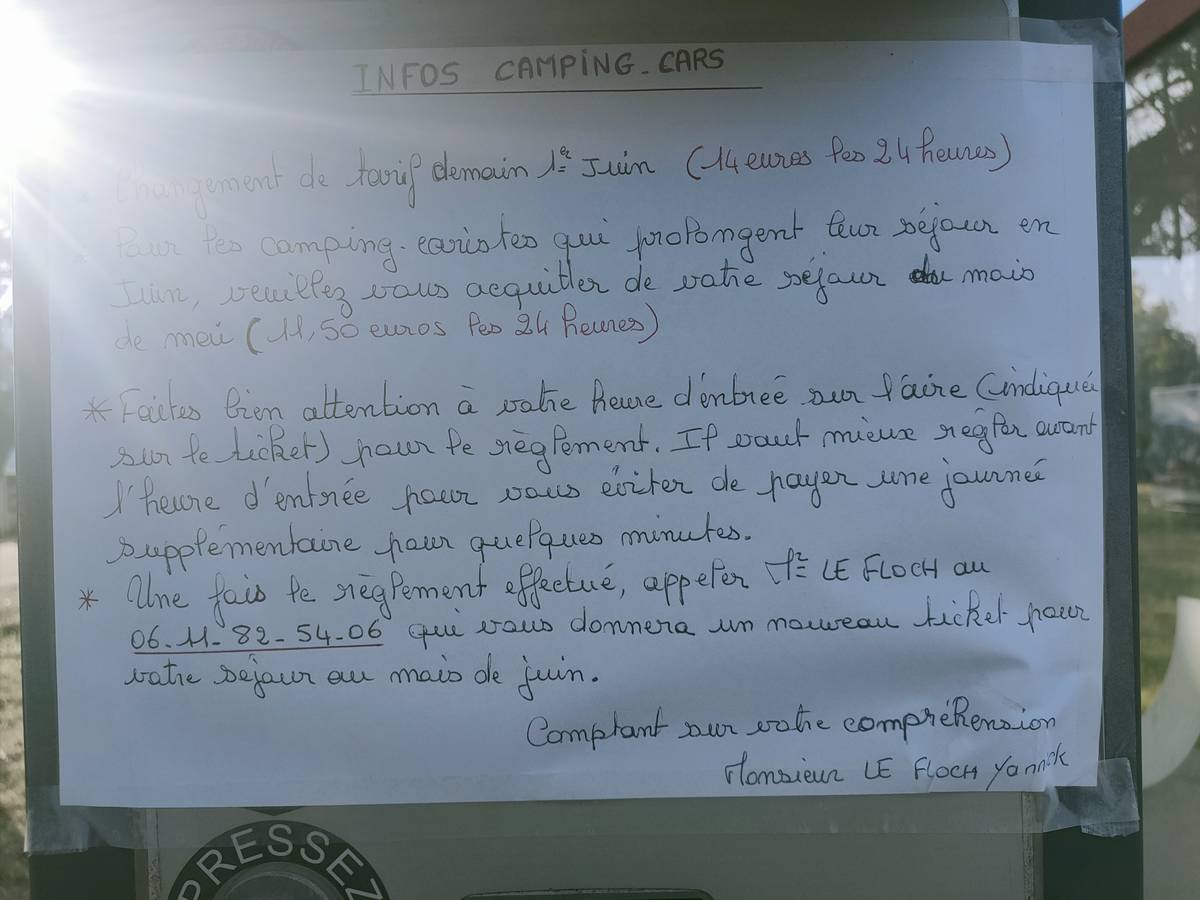 INFOS CAMPING-CARS
Changement de tarif demain 1er Juin (14 euros les 24 heures)
Pour les camping-caristes qui prolongent leur séjour en
Juin, veuillez vous acquitter de votre séjour du mois
de mai (11,50 euros les 24 heures)
* Faites bien attention à votre heure d'entrée sur l'aire (indiquée
sur le ticket) pour le règlement. Il vaut mieux régler avant
l'heure d'entrée pour vous éviter de payer une journée
supplémentaire pour quelques minutes.
* Une fois le règlement effectué, appeler Mr LE FLOCH au
06-11-82-54-06 qui vous donnera un nouveau ticket pour
votre séjour au mois de juin.
Comptant sur votre compréhension
Monsieur LE FLOCH Yannick
PRESSEZ